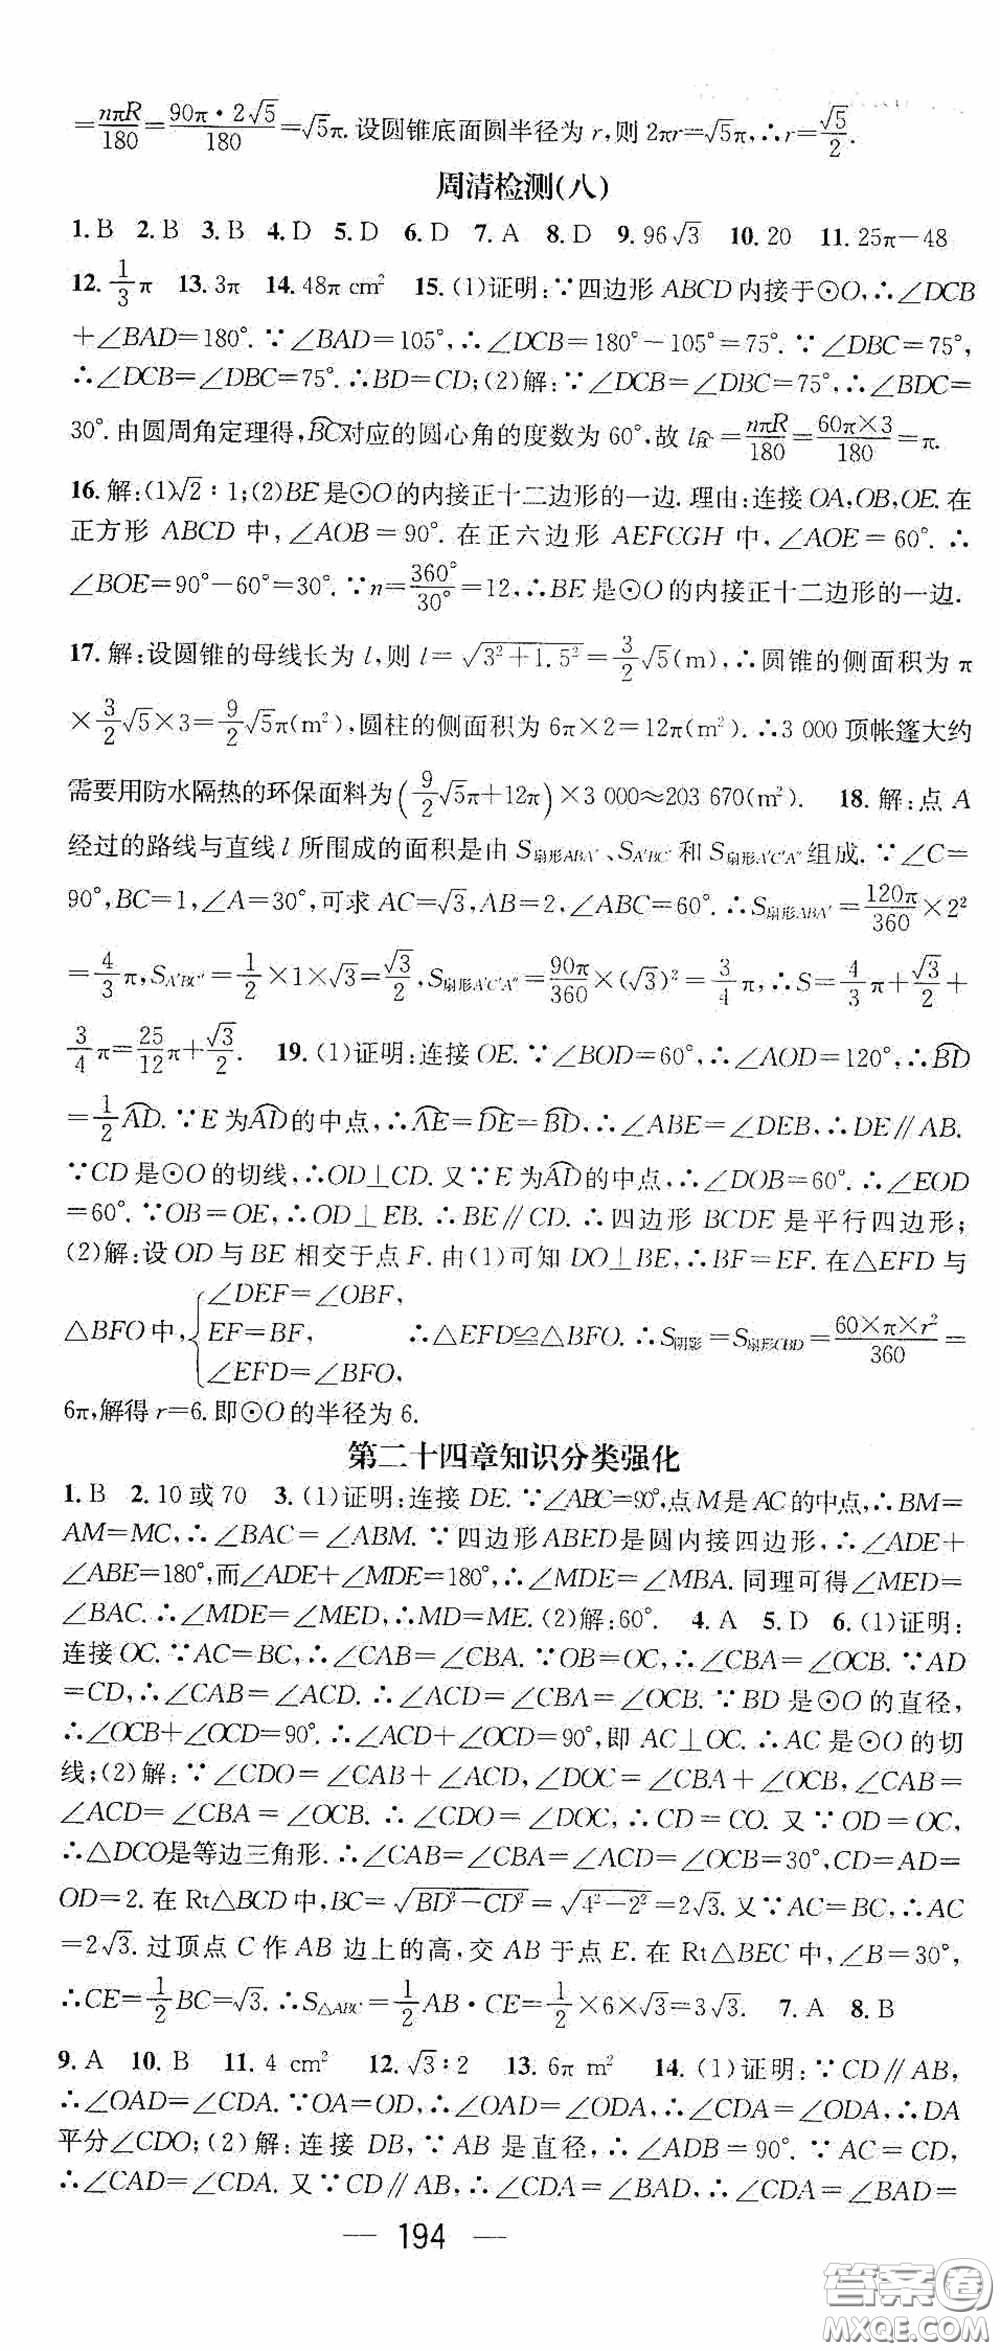 =nπR/180=90π·2√5/180=√5π.设圆锥底面圆半径为r,则2πr=√5π,∴r=√5/2.
周清检测(八)
1.B 2.B 3.B 4.D 5.D 6.D 7.A 8.D 9.96√3 10.20 11.25π-48
12.1/3π 13.3π 14.48π cm² 15.(1)证明:∵四边形ABCD内接于⊙O,∴∠DCB
+∠BAD=180°.∵∠BAD=105°,∴∠DCB=180°-105°=75°.∵∠DBC=75°,
∴∠DCB=∠DBC=75°.∴BD=CD;(2)解:∵∠DCB=∠DBC=75°,∴∠BDC=
30°.由圆周角定理得,B͡C对应的圆心角的度数为60°,故l B͡C=nπR/180=60π×3/180=π.
16.解:(1)√2∶1;(2)BE是⊙O的内接正十二边形的一边.理由:连接OA,OB,OE.在
正方形ABCD中,∠AOB=90°.在正六边形AEFCGH中,∠AOE=60°.∴
∠BOE=90°-60°=30°.∵n=360°/30°=12,∴BE是⊙O的内接正十二边形的一边.
17.解:设圆锥的母线长为l,则l=√(3²+1.5²)=3/2√5(m),∴圆锥的侧面积为π
×3/2√5×3=9/2√5π(m²),圆柱的侧面积为6π×2=12π(m²).∴3 000顶帐篷大约
需要用防水隔热的环保面料为(9/2√5π+12π)×3 000≈203 670(m²). 18.解:点A
经过的路线与直线l所围成的面积是由S扇形ABA′、S△A′BC′和S扇形A′C′A″组成.∵∠C=
90°,BC=1,∠A=30°,可求AC=√3,AB=2,∠ABC=60°.∴S扇形ABA′=120π/360×2²
=4/3π,S△A′BC′=1/2×1×√3=√3/2,S扇形A′C′A″=90π/360×(√3)²=3/4π,∴S=4/3π+√3/2+
3/4π=25/12π+√3/2. 19.(1)证明:连接OE.∵∠BOD=60°,∴∠AOD=120°,∴B͡D
=1/2A͡D.∵E为A͡D的中点,∴A͡E=D͡E=B͡D,∴∠ABE=∠DEB,∴DE∥AB.
∵CD是⊙O的切线,∴OD⊥CD.又∵E为A͡D的中点,∴∠DOB=60°.∴∠EOD
=60°.∵OB=OE,∴OD⊥EB.∴BE∥CD.∴四边形BCDE是平行四边形;
(2)解:设OD与BE相交于点F.由(1)可知DO⊥BE,∴BF=EF.在△EFD与
△BFO中,{∠DEF=∠OBF, EF=BF, ∠EFD=∠BFO, ∴△EFD≌△BFO.∴S阴影=S扇形OBD=60×π×r²/360=
6π,解得r=6.即⊙O的半径为6.
第二十四章知识分类强化
1.B 2.10或70 3.(1)证明:连接DE.∵∠ABC=90°,点M是AC的中点,∴BM=
AM=MC,∴∠BAC=∠ABM.∵四边形ABED是圆内接四边形,∴∠ADE+
∠ABE=180°,而∠ADE+∠MDE=180°,∴∠MDE=∠MBA.同理可得∠MED=
∠BAC.∴∠MDE=∠MED,∴MD=ME.(2)解:60°. 4.A 5.D 6.(1)证明:
连接OC.∵AC=BC,∴∠CAB=∠CBA.∵OB=OC,∴∠CBA=∠OCB.∵AD
=CD,∴∠CAB=∠ACD.∴∠ACD=∠CBA=∠OCB.∵BD是⊙O的直径,
∴∠OCB+∠OCD=90°.∴∠ACD+∠OCD=90°,即AC⊥OC.∴AC是⊙O的切
线;(2)解:∵∠CDO=∠CAB+∠ACD,∠DOC=∠CBA+∠OCB,∠CAB=
∠ACD=∠CBA=∠OCB.∴∠CDO=∠DOC,∴CD=CO.又∵OD=OC,
∴△DCO是等边三角形.∴∠CAB=∠CBA=∠ACD=∠OCB=30°,CD=AD=
OD=2.在Rt△BCD中,BC=√(BD²-CD²)=√(4²-2²)=2√3.又∵AC=BC,∴AC
=2√3.过顶点C作AB边上的高,交AB于点E.在Rt△BEC中,∠B=30°,
∴CE=1/2BC=√3.∴S△ABC=1/2AB·CE=1/2×6×√3=3√3. 7.A 8.B
9.A 10.B 11.4 cm² 12.√3∶2 13.6π m² 14.(1)证明:∵CD∥AB,
∴∠OAD=∠CDA.∵OA=OD,∴∠OAD=∠ODA,∴∠CDA=∠ODA,∴DA
平分∠CDO;(2)解:连接DB,∵AB是直径,∴∠ADB=90°.∵AC=CD,
∴∠CAD=∠CDA.又∵CD∥AB,∴∠CDA=∠BAD,∴∠CDA=∠BAD=
— 194 —
答案圈
MXQE.COM